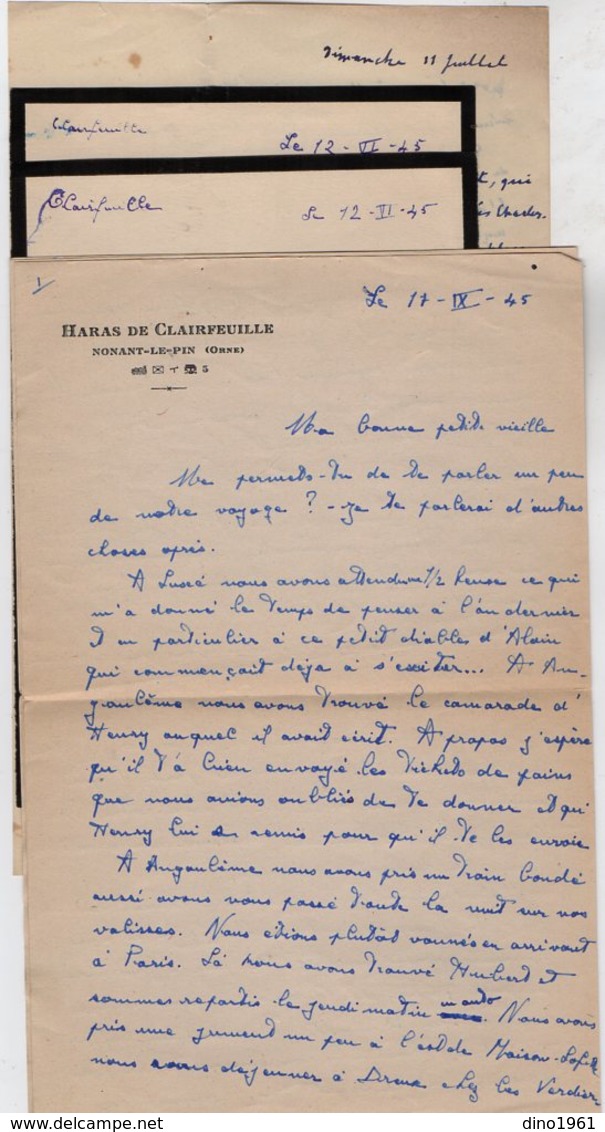 Dimanche 11 Juillet
Clairfeuille
Le 12-VI-45
t, qui
Clairfeuille
Le 12-VI-45
Charles-
1
Le 17-IX-45
HARAS DE CLAIRFEUILLE
NONANT-LE-PIN (ORNE)
5
Ma bonne petite vieille
Me permets-tu de te parler un peu
de notre voyage ? - Je te parlerai d'autres
choses après.
A nous avons attendu une 1/2 heure ce qui
m'a donné le temps de penser à l'an dernier
et en particulier à ce petit diables d'Alain
qui commençait déjà à s'exciter... A An-
goulême nous avons trouvé le camarade d'
Henry auquel il avait écrit. A propos j'espère
qu'il t'a bien envoyé les tickets de pains
que nous avions oubliés de te donner et qui
Henry lui a remis pour qu'il te les envoie
A Angoulême nous avons pris un train bondé
aussi avons nous passé toute la nuit sur nos
valises. Nous étions plutôt vannés en arrivant
à Paris. Là nous avons trouvé Hubert et
sommes repartis le jeudi matin. Nous avons
pris une jument un peu à l'est de Maison-
nous déjeuner à Dreux chez les Verdier
dino1961